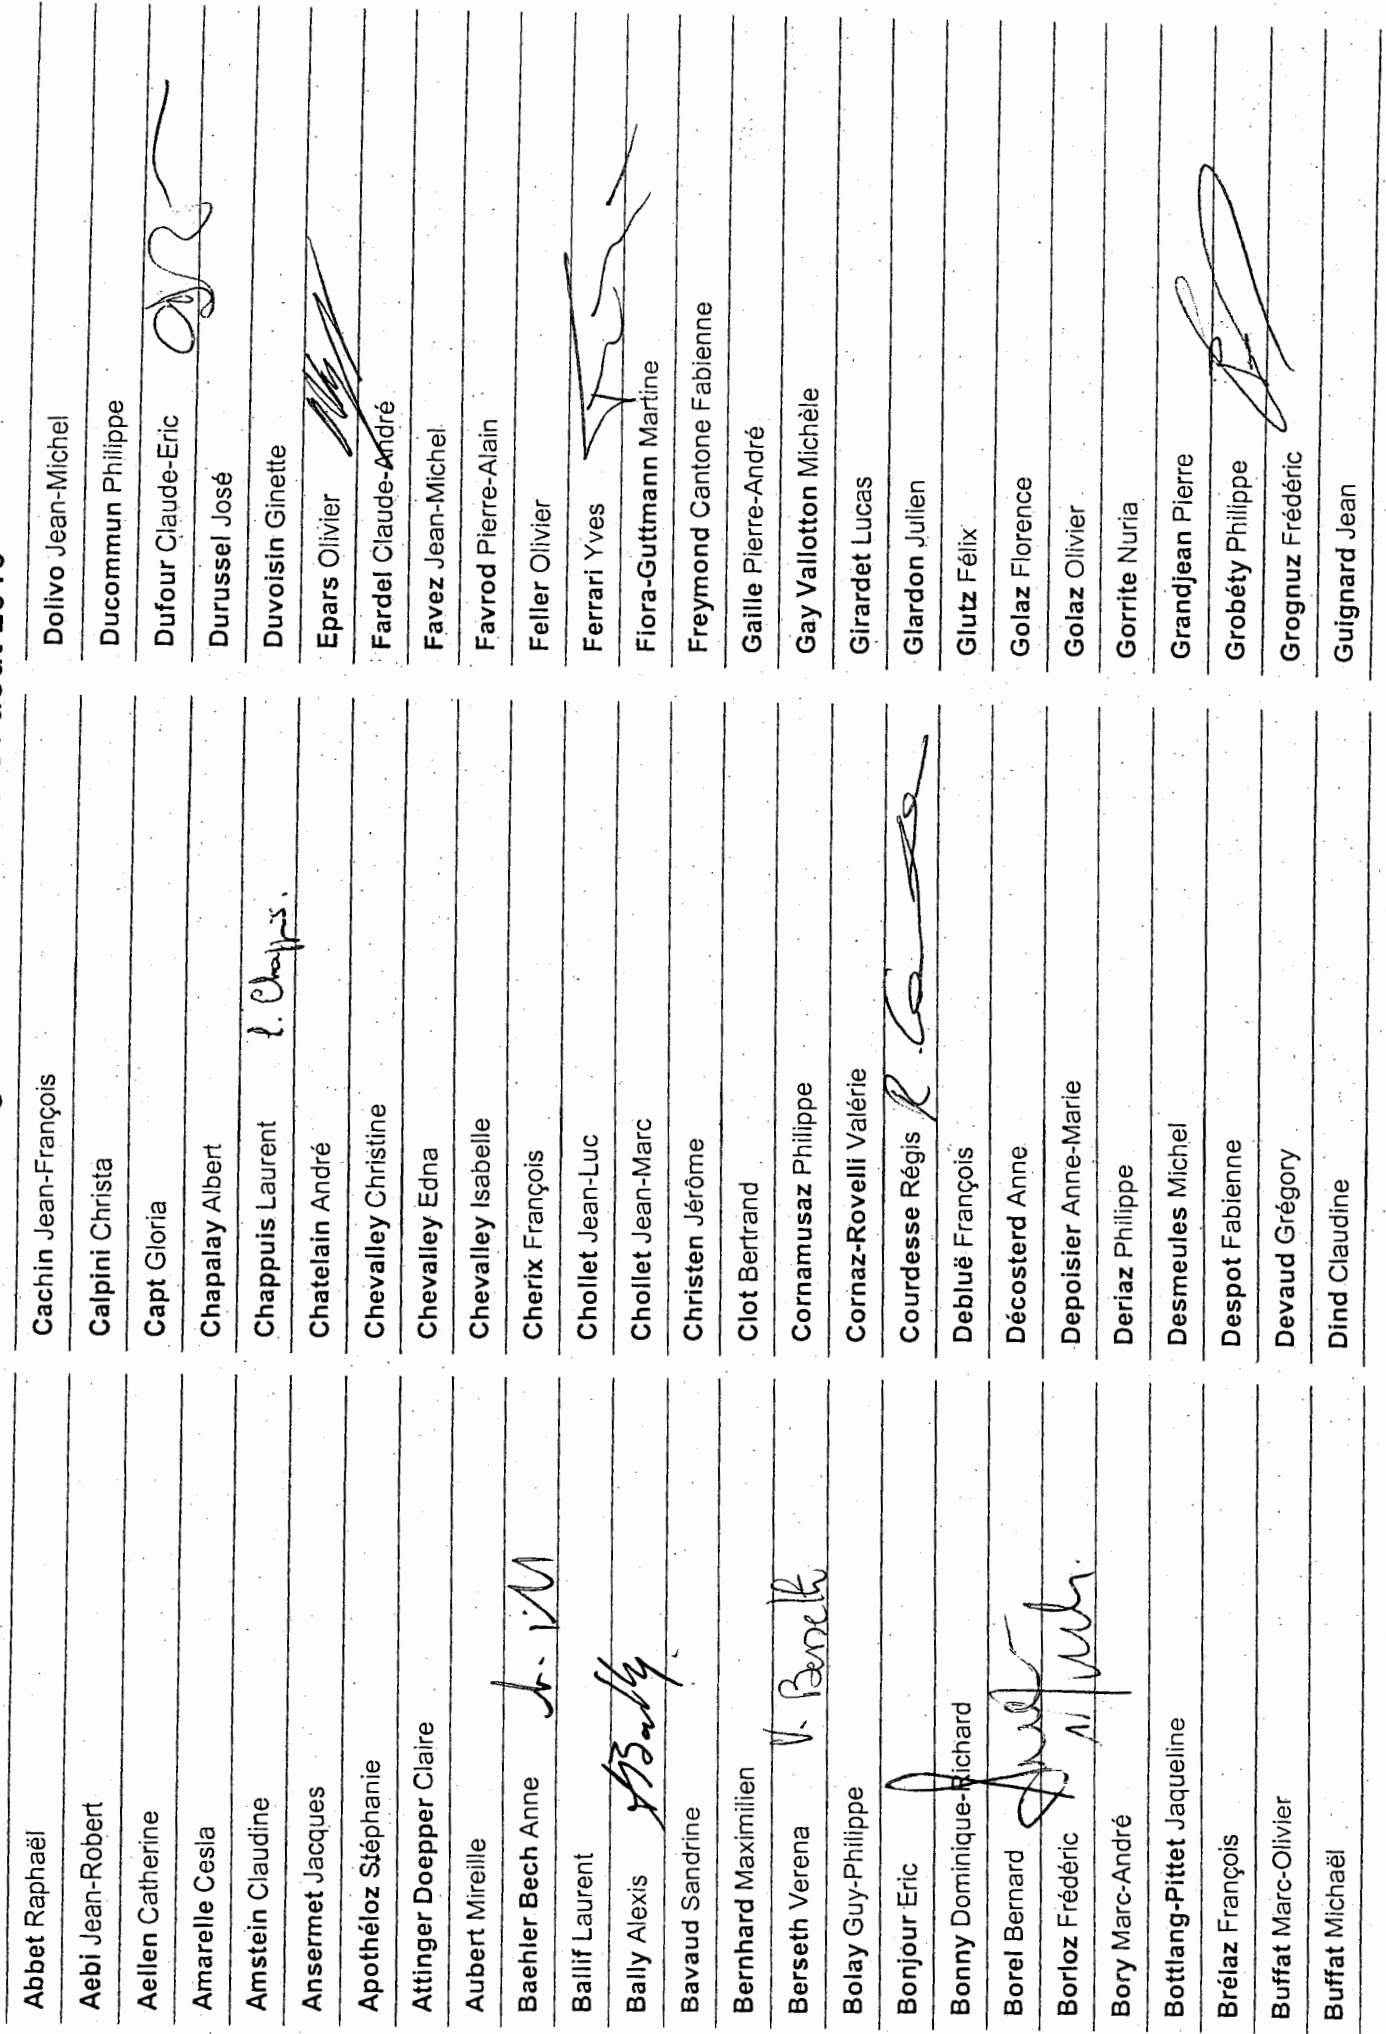 Abbet Raphaël
Aebi Jean-Robert
Aellen Catherine
Amarelle Cesla
Amstein Claudine
Ansermet Jacques
Apothéloz Stéphanie
Attinger Doepper Claire
Aubert Mireille
Baehler Bech Anne
Ballif Laurent
Bally Alexis ABally
Bavaud Sandrine
Bernhard Maximilien
Berseth Verena V. Berseth
Bolay Guy-Philippe
Bonjour Eric
Bonny Dominique-Richard
Borel Bernard
Borloz Frédéric
Bory Marc-André
Bottlang-Pittet Jaqueline
Brélaz François
Buffat Marc-Olivier
Buffat Michaël
Cachin Jean-François
Calpini Christa
Capt Gloria
Chapalay Albert
Chappuis Laurent l. Chappuis.
Chatelain André
Chevalley Christine
Chevalley Edna
Chevalley Isabelle
Cherix François
Chollet Jean-Luc
Chollet Jean-Marc
Christen Jérôme
Clot Bertrand
Cornamusaz Philippe
Cornaz-Rovelli Valérie
Courdesse Régis
Debluë François
Décosterd Anne
Depoisier Anne-Marie
Deriaz Philippe
Desmeules Michel
Despot Fabienne
Devaud Grégory
Dind Claudine
Dolivo Jean-Michel
Ducommun Philippe
Dufour Claude-Eric
Durussel José
Duvoisin Ginette
Epars Olivier
Fardel Claude-André
Favez Jean-Michel
Favrod Pierre-Alain
Feller Olivier
Ferrari Yves
Fiora-Guttmann Martine
Freymond Cantone Fabienne
Gaille Pierre-André
Gay Vallotton Michèle
Girardet Lucas
Glardon Julien
Glutz Félix
Golaz Florence
Golaz Olivier
Gorrite Nuria
Grandjean Pierre
Grobéty Philippe
Grognuz Frédéric
Guignard Jean